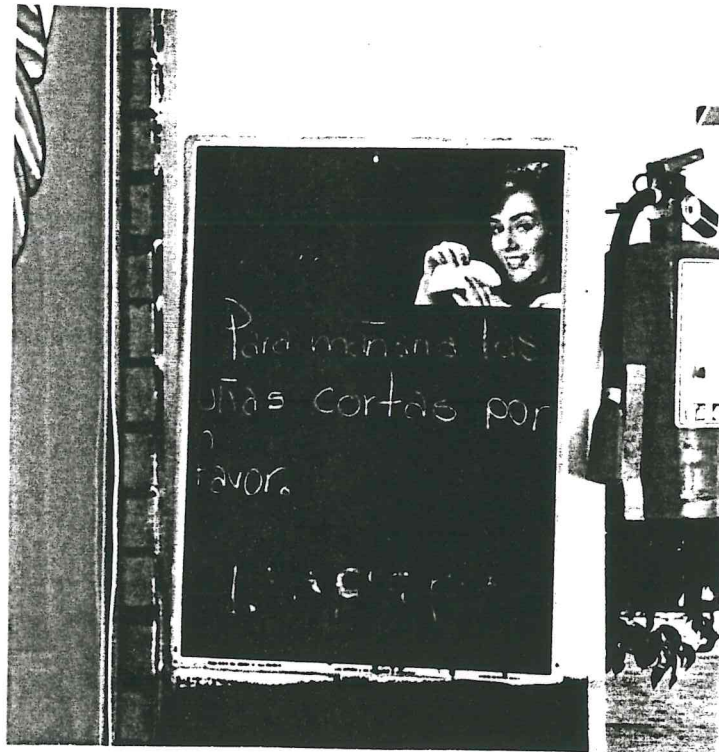 Para mañana las
uñas cortas por
favor.